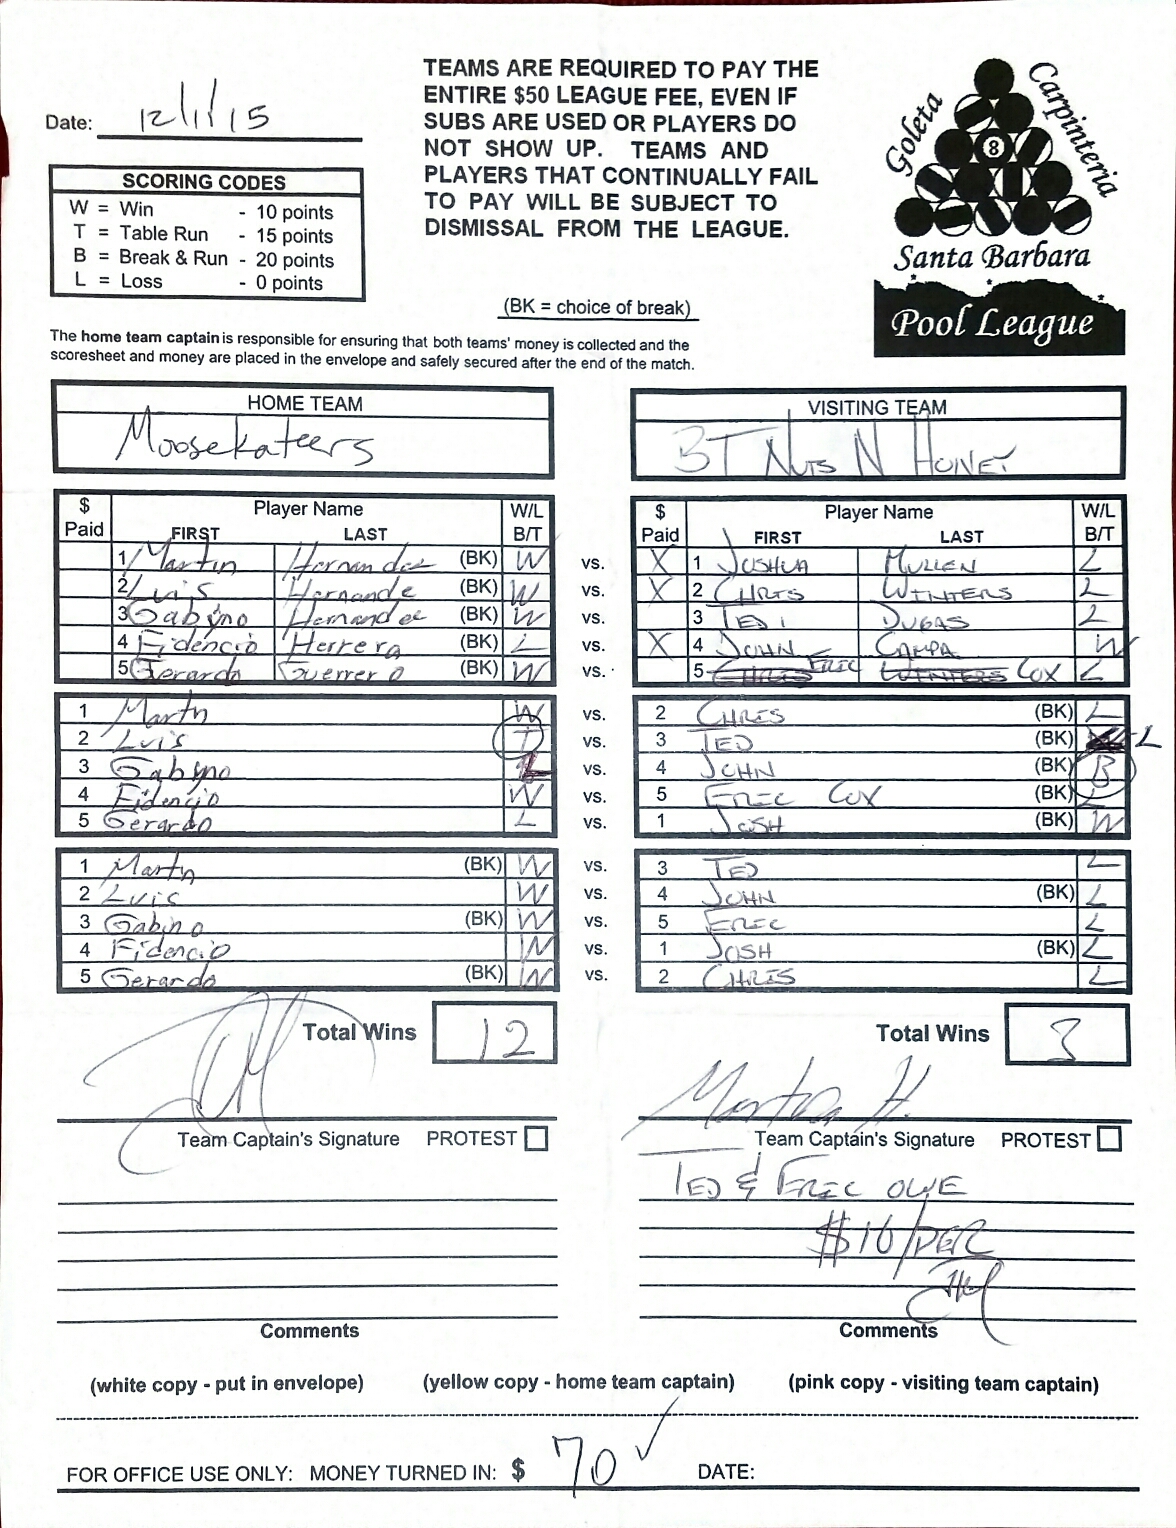 Date: 12/1/15
TEAMS ARE REQUIRED TO PAY THE
ENTIRE $50 LEAGUE FEE, EVEN IF
SUBS ARE USED OR PLAYERS DO
NOT SHOW UP. TEAMS AND
PLAYERS THAT CONTINUALLY FAIL
TO PAY WILL BE SUBJECT TO
DISMISSAL FROM THE LEAGUE.
Goleta
Carpinteria
8
Santa Barbara
Pool League
SCORING CODES
W = Win - 10 points
T = Table Run - 15 points
B = Break & Run - 20 points
L = Loss - 0 points
(BK = choice of break)
The home team captain is responsible for ensuring that both teams' money is collected and the
scoresheet and money are placed in the envelope and safely secured after the end of the match.
HOME TEAM VISITING TEAM
Moosekateers BT NUTS N HONEY
$ Paid Player Name FIRST LAST W/L B/T $ Paid Player Name FIRST LAST W/L B/T
1 Martin Hernandez (BK) W vs. X 1 JOSHUA MULLEN L
2 Luis Hernande W vs. X 2 CHRIS WINTERS L
3 Gabyno Hernandez W vs. 3 TED DUGAS L
4 Fidencio Herrera L vs. X 4 JOHN CAMPA W
5 Gerardo Guerrero (BK) W vs. 5 CHRIS ERIC WINTERS COX L
1 Martn W vs. 2 CHRIS (BK) L
2 Luis T vs. 3 TED (BK) L
3 Gabyno L vs. 4 JOHN (BK) B
4 Fidencio W vs. 5 ERIC COX (BK) L
5 Gerardo L vs. 1 JOSH (BK) W
1 Martn (BK) W vs. 3 TED L
2 Luis W vs. 4 JOHN (BK) L
3 Gabino (BK) W vs. 5 ERIC L
4 Fidencio W vs. 1 JOSH (BK) L
5 Gerardo (BK) W vs. 2 CHRIS L
Total Wins 12 Total Wins 3
Martin H.
Team Captain's Signature PROTEST Team Captain's Signature PROTEST
TED & ERIC OWE
$10/PER
Comments Comments
(white copy - put in envelope) (yellow copy - home team captain) (pink copy - visiting team captain)
FOR OFFICE USE ONLY: MONEY TURNED IN: $ 70 ✓ DATE: